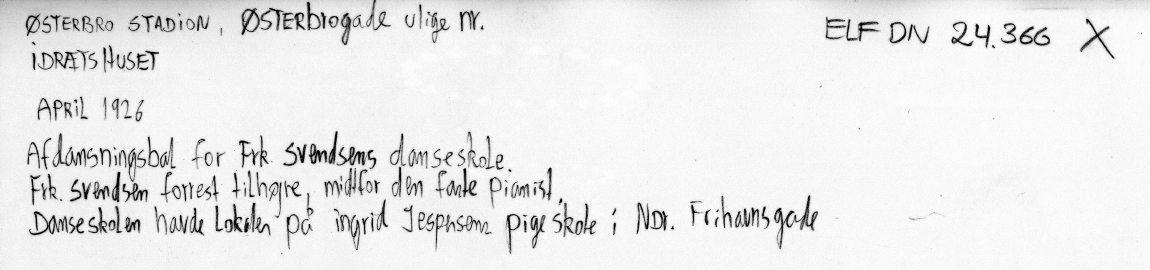 ØSTERBRO STADION, ØSTERbrogade ulige nr. ELF DN 24.366 X
iDRÆTSHUSET
APRIL 1926
Afdansningsbal for Frk. Svendsens danseskole.
Frk. Svendsen forrest tilhøjre, midtfor den faste pianist.
Danseskolen havde Lokaler på ingrid Jespersens pigeskole i Ndr. Frihavnsgade